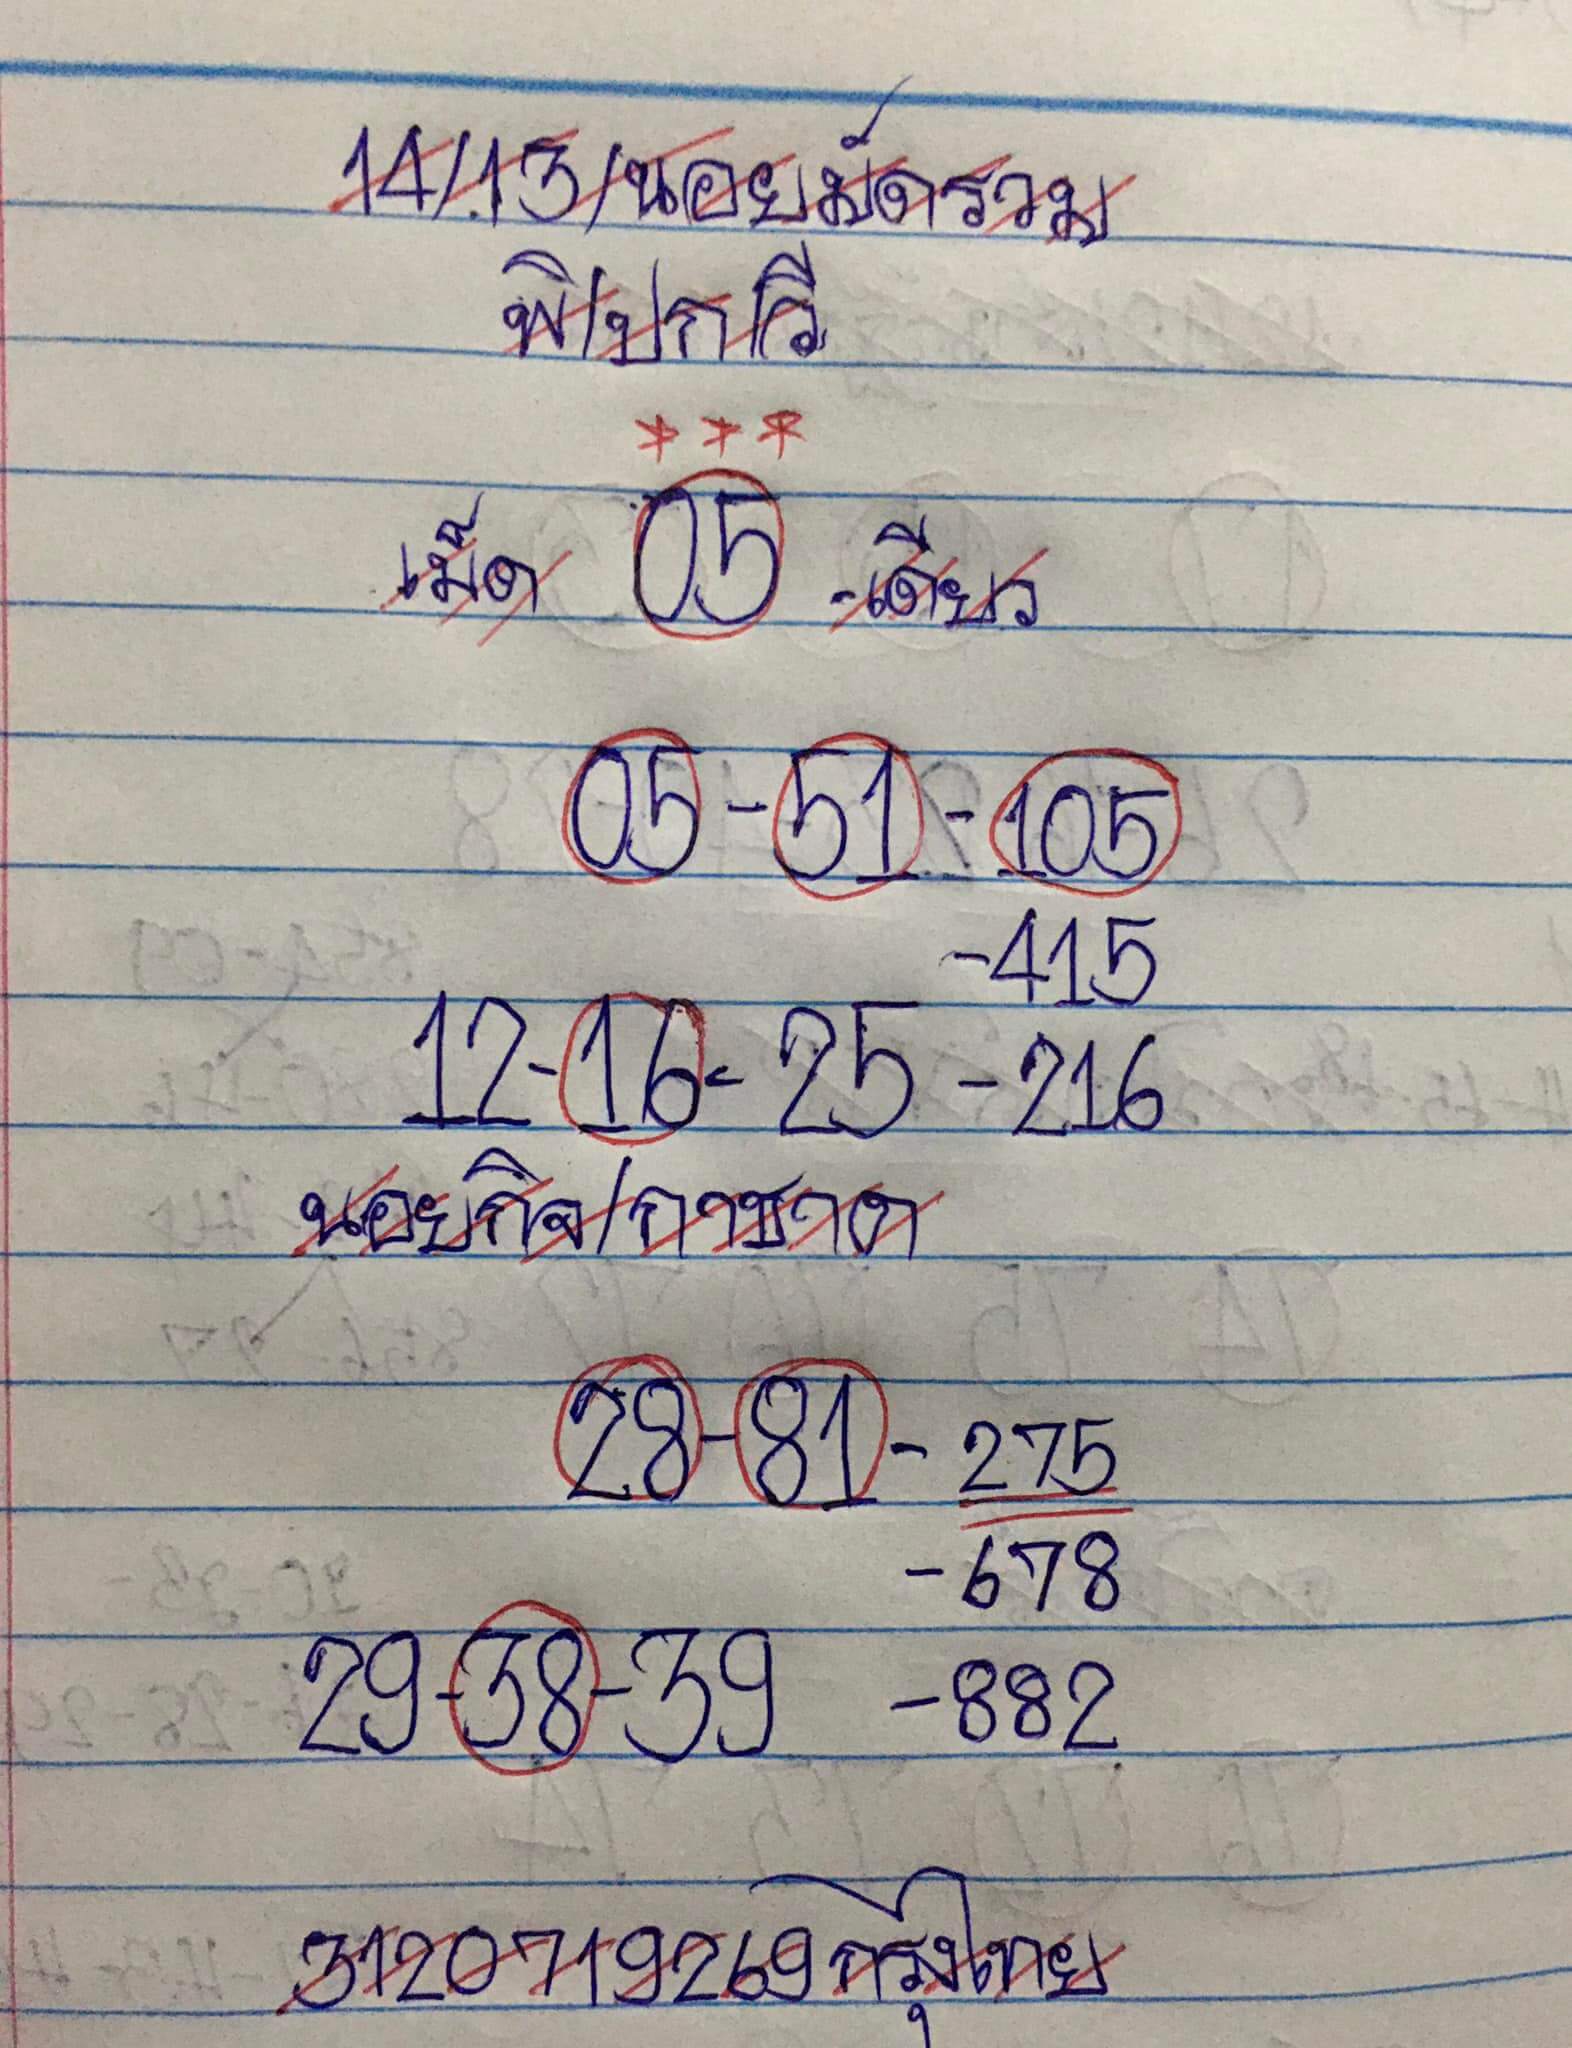 14/13/นอยมัดรวม
พิ/ปก/วี
***
เม็ด 05 -เดียว
05-51-105
-415
12-16-25-216
นอยกิจ/กาชาด
28-81-275
-678
29-38-39 -882
3120719269กรุงไทย